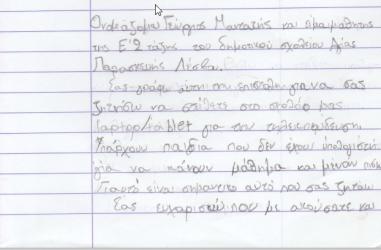 Ονομάζομαι Γεώργιος Μανταής και είμαι μαθητής
της Ε'2 τάξης του δημοτικού σχολείου Αγίας
Παρασκευής Λέσβου.
Σας γράφω αυτή την επιστολή για να σας
ζητήσω να στείλετε στο σχολείο μας
laptop/tablet για την τηλεκπαίδευση.
Υπάρχουν παιδιά που δεν έχουν υπολογιστή
για να κάνουν μάθημα και μένουν πίσω.
Γιαυτό είναι σημαντικό αυτό που σας ζητάω.
Σας ευχαριστώ που με ακούσατε και